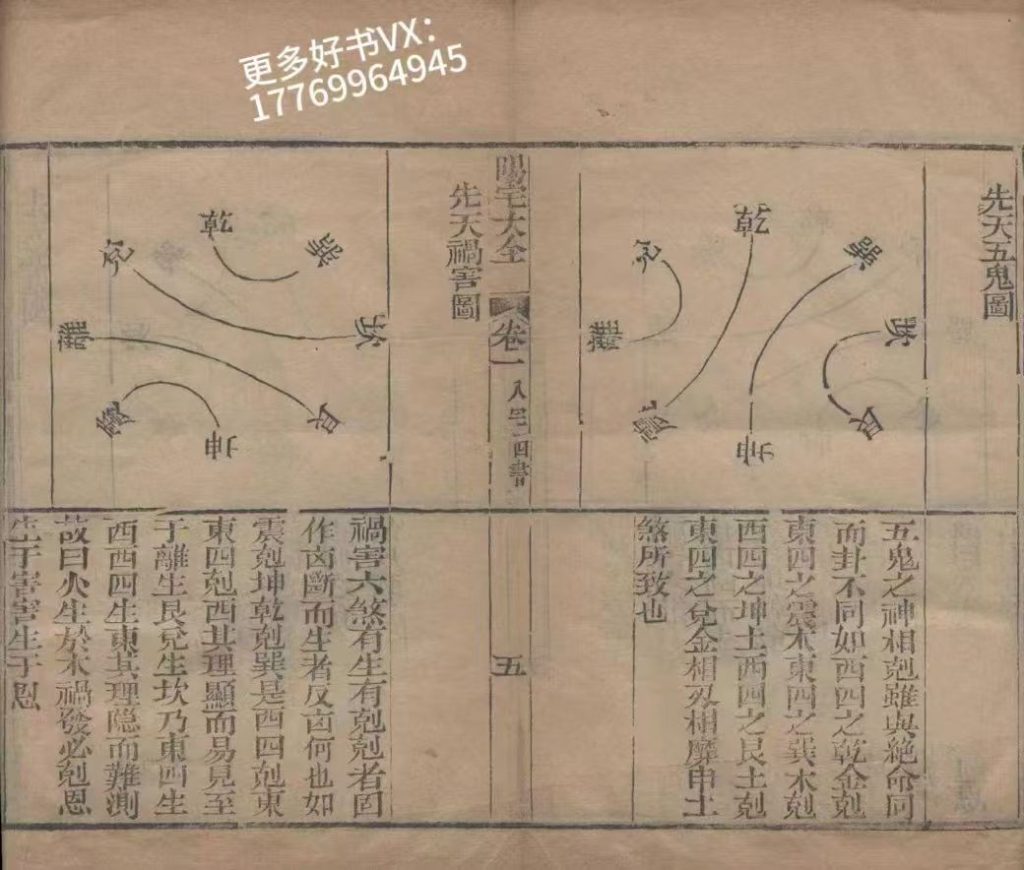 更多好书VX：
17769964945
先天五鬼圖
乾
兌
巽
離
坎
震
艮
坤
五鬼之神相剋雖與絕命同
而卦不同如西四之乾金剋
東四之震木東四之巽木剋
西四之坤土西四之艮土剋
東四之
金相刄相靡申土
煞所致也
陽宅大全
卷一
八宅四書
五
先天禍害圖
乾
兌
巽
離
坎
震
艮
坤
禍害六煞有生有剋剋者固
作凶斷而生者反凶何也如
震剋坤乾剋巽是西四剋東
東四剋西其理顯而易見至
于離生艮兌生坎乃東四生
西西四生東其理隐而難測
故曰火生於木禍發必剋恩
生于害害生于恩